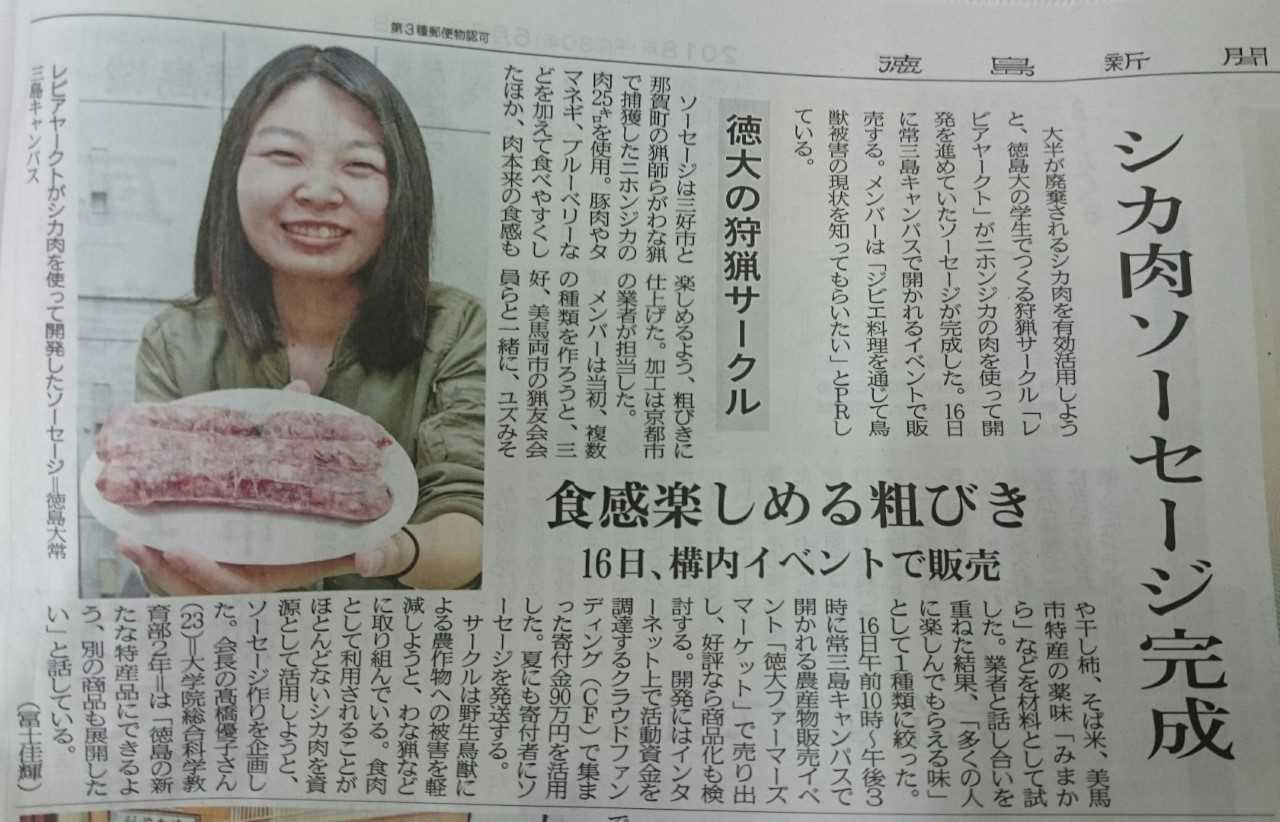 徳島新聞
第3種郵便物認可
シカ肉ソーセージ完成
徳大の狩猟サークル
食感楽しめる粗びき
16日、構内イベントで販売
大半が廃棄されるシカ肉を有効活用しよう
と、徳島大の学生でつくる狩猟サークル「レ
ビアヤークト」がニホンジカの肉を使って開
発を進めていたソーセージが完成した。16日
に常三島キャンパスで開かれるイベントで販
売する。メンバーは「ジビエ料理を通じて鳥
獣被害の現状を知ってもらいたい」とPRし
ている。
ソーセージは三好市と
那賀町の猟師らがわな猟
で捕獲したニホンジカの
肉25㌔を使用。豚肉やタ
マネギ、ブルーベリーな
どを加えて食べやすくし
たほか、肉本来の食感も
楽しめるよう、粗びきに
仕上げた。加工は京都市
の業者が担当した。
メンバーは当初、複数
の種類を作ろうと、三
好、美馬両市の猟友会会
員らと一緒に、ユズみそ
や干し柿、そば米、美馬
市特産の薬味「みまか
ら」などを材料として試
した。業者と話し合いを
重ねた結果、「多くの人
に楽しんでもらえる味」
として1種類に絞った。
16日午前10時〜午後3
時に常三島キャンパスで
開かれる農産物販売イベ
ント「徳大ファーマーズ
マーケット」で売り出
し、好評なら商品化も検
討する。開発にはインタ
ーネット上で活動資金を
調達するクラウドファン
ディング(CF)で集ま
った寄付金90万円を活用
した。夏にも寄付者にソ
ーセージを発送する。
サークルは野生鳥獣に
よる農作物への被害を軽
減しようと、わな猟など
に取り組んでいる。食肉
として利用されることが
ほとんどないシカ肉を資
源として活用しようと、
ソーセージ作りを企画し
た。会長の髙橋優子さん
(23)=大学院総合科学教
育部2年=は「徳島の新
たな特産品にできるよ
う、別の商品も展開した
い」と話している。
(冨士佳輝)
レビアヤークトがシカ肉を使って開発したソーセージ=徳島大常
三島キャンパス